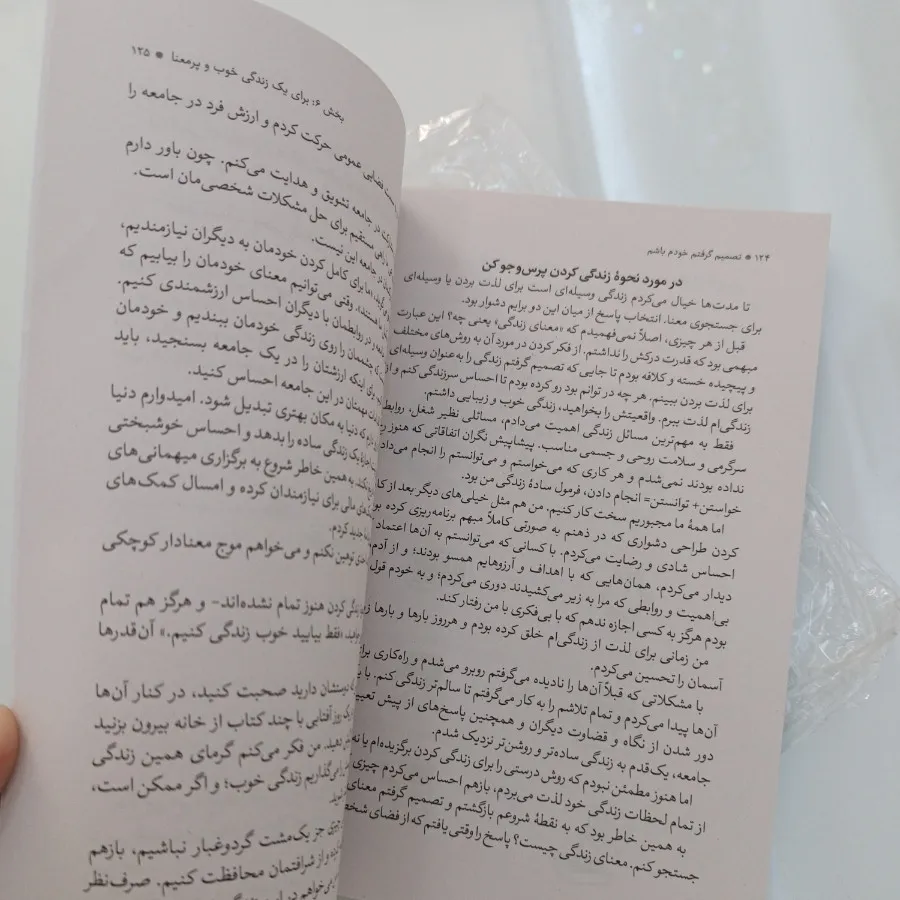 ۱۲۴ ● تصمیم گرفتم خودم باشم
در مورد نحوهٔ زندگی کردن پرس‌وجو کن
تا مدت‌ها خیال می‌کردم زندگی وسیله‌ای است برای لذت بردن یا وسیله‌ای
برای جستجوی معنا. انتخاب پاسخ از میان این دو برایم دشوار بود.
قبل از هر چیزی، اصلاً نمی‌فهمیدم که «معنای زندگی» یعنی چه؟ این عبارت
مبهمی بود که قدرت درکش را نداشتم. از فکر کردن در مورد آن به روش‌های مختلف
و پیچیده خسته و کلافه بودم تا جایی که تصمیم گرفتم زندگی را به‌عنوان وسیله‌ای
برای لذت بردن ببینم. هر چه در توانم بود رو کرده بودم تا احساس سرزندگی کنم و از
زندگی‌ام لذت ببرم. واقعیتش را بخواهید، زندگی خوب و زیبایی داشتم.
فقط به مهم‌ترین مسائل زندگی اهمیت می‌دادم، مسائلی نظیر شغل، روابط
سرگرمی و سلامت روحی و جسمی مناسب. پیشاپیش نگران اتفاقاتی که هنوز
نداده بودند نمی‌شدم و هر کاری که می‌خواستم و می‌توانستم را انجام
خواستن+ توانستن= انجام دادن، فرمول سادهٔ زندگی من بود.
اما همهٔ ما مجبوریم سخت کار کنیم. من هم مثل خیلی‌های دیگر بعد از
کردن طراحی دشواری که در ذهنم به صورتی کاملاً مبهم برنامه‌ریزی کرده
احساس شادی و رضایت می‌کردم. با کسانی که می‌توانستم به آن‌ها اعتماد
دیدار می‌کردم، همان‌هایی که با اهداف و آرزوهایم همسو بودند؛ و از
بی‌اهمیت و روابطی که مرا به زیر می‌کشیدند دوری می‌کردم؛ و به خودم قول
بودم هرگز به کسی اجازه ندهم که با بی‌فکری با من رفتار کند.
من زمانی برای لذت از زندگی‌ام خلق کرده بودم و هرروز بارها و بارها
آسمان را تحسین می‌کردم.
با مشکلاتی که قبلاً آن‌ها را نادیده می‌گرفتم روبرو می‌شدم و راه‌کاری
آن‌ها پیدا می‌کردم و تمام تلاشم را به کار می‌گرفتم تا سالم‌تر زندگی کنم. با
دور شدن از نگاه و قضاوت دیگران و همچنین پاسخ‌های از پیش
جامعه، یک‌قدم به زندگی ساده‌تر و روشن‌تر نزدیک شدم.
اما هنوز مطمئن نبودم که روش درستی را برای زندگی کردن برگزیده‌ام یا
از تمام لحظات زندگی خود لذت می‌بردم، بازهم احساس می‌کردم چیزی
به همین خاطر بود که به نقطهٔ شروعم بازگشتم و تصمیم گرفتم معنای
جستجو کنم. معنای زندگی چیست؟ پاسخ را وقتی یافتم که از فضای
بخش ۶: برای یک زندگی خوب و پرمعنا ● ۱۲۵
فضایی عمومی حرکت کردم و ارزش فرد در جامعه را
در جامعه تشویق و هدایت می‌کنم. چون باور دارم
مستقیم برای حل مشکلات شخصی‌مان است.
در جامعه این نیست.
اما برای کامل کردن خودمان به دیگران نیازمندیم،
هستند. وقتی می‌توانیم معنای خودمان را بیابیم که
در روابطمان با دیگران احساس ارزشمندی کنیم.
چشممان را روی زندگی خودمان ببندیم و خودمان
برای اینکه ارزشتان را در یک جامعه بسنجید، باید
بهمنان در این جامعه احساس کنید.
که دنیا به مکان بهتری تبدیل شود. امیدوارم دنیا
یک زندگی ساده را بدهد و احساس خوشبختی
به همین خاطر شروع به برگزاری میهمانی‌های
مالی برای نیازمندان کرده و امسال کمک‌های
جدید کردم.
توهین نکنم و می‌خواهم موج معنادار کوچکی
کردن هنوز تمام نشده‌اند- و هرگز هم تمام
«فقط بیایید خوب زندگی کنیم.» آن‌قدرها
دوستشان دارید صحبت کنید، در کنار آن‌ها
یک روز آفتابی با چند کتاب از خانه بیرون بزنید
من فکر می‌کنم گرمای همین زندگی
می‌گذاریم زندگی خوب؛ و اگر ممکن است،
جز یک‌مشت گردوغبار نباشیم، بازهم
و از شرافتمان محافظت کنیم. صرف‌نظر